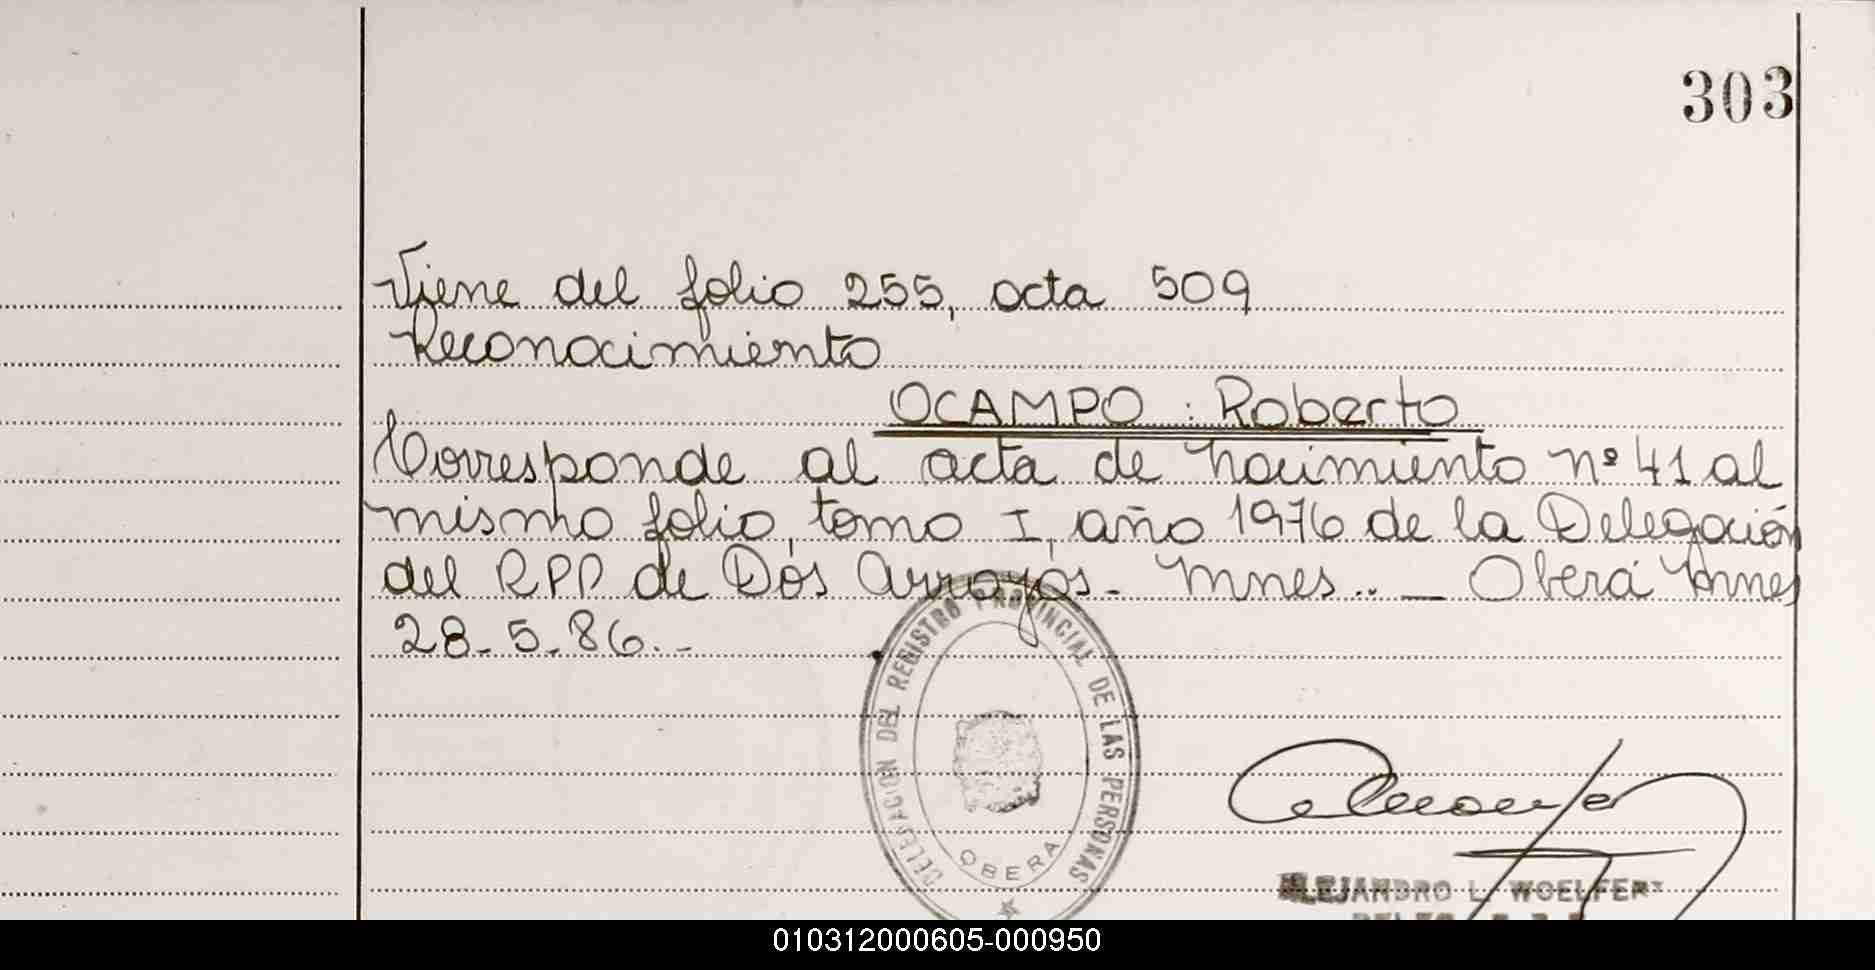 303
Viene del folio 255, acta 509
Reconocimiento
OCAMPO : Roberto
Corresponde al acta de nacimiento nº 41 al
mismo folio, tomo I, año 1976 de la Delegación
del RPP de Dos Arroyos - Mnes.. — Oberá Mnes
28-5-86.-
DELEGACION DEL REGISTRO PROVINCIAL DE LAS PERSONAS
OBERA
ALEJANDRO L. WOELFERT
010312000605-000950